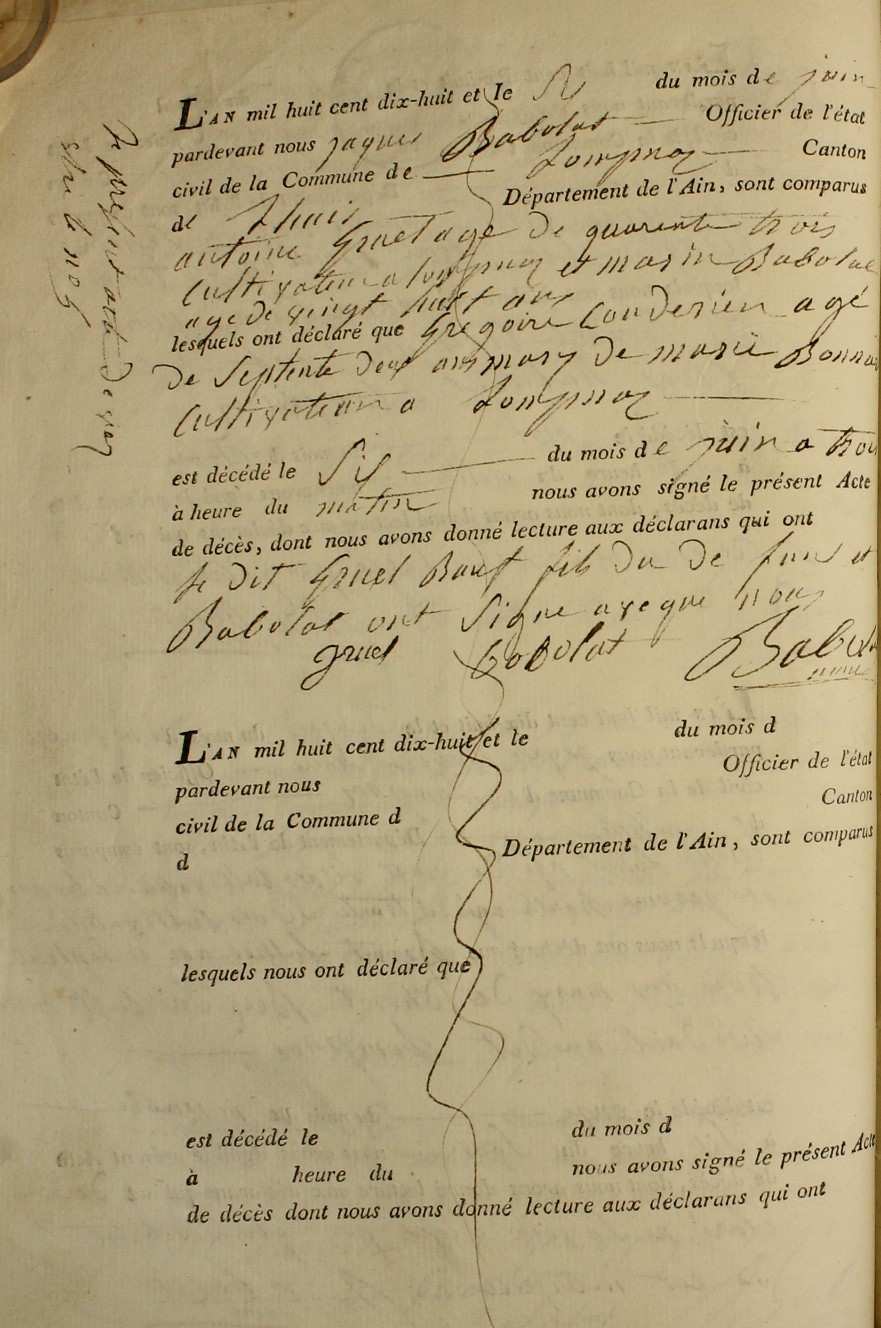 L'AN mil huit cent dix-huit et le Si du mois de juin
pardevant nous jaques Babolat Officier de l'état
civil de la Commune de Canton
de Département de l'Ain, sont comparus
antoine gruel age de quarente trois
Cultivateur a et marin Babolat
age de vingt huit ans
lesquels ont déclaré que gregoire Couderier agé
De Septente deux ans mary De marie
Cultivateur a
est décédé le Sis du mois de juin a trois
à heure du matin nous avons signé le présent Acte
de décès, dont nous avons donné lecture aux déclarans qui ont
le dit gruel et
Babolat ont Signe aveque nous
gruel
baBolat
Babolat
le présent acte
sou le no 5
L'AN mil huit cent dix-huit et le du mois d
pardevant nous Officier de l'état
civil de la Commune d Canton
d Département de l'Ain, sont comparus
lesquels nous ont déclaré que
est décédé le du mois d
à heure du nous avons signé le présent Acte
de décès dont nous avons donné lecture aux déclarans qui ont